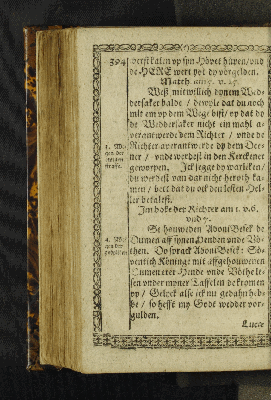 394 versamlen vp syn Hövet hüpen / vnd
de HERE wert ydt dy vorgelden.
Matth. am 5. v. 25.
Weß mitwillich dynem Wed-
dersaker balde / dewyle dat du noch
mit em vp dem Wege bist / vp dat dy
de Weddersaker nicht ein mahl a-
verantwerde dem Richter / vnde de
Richter averantwerde dy dem Dee-
ner / vnde werdest in den Kerckener
geworpen. Ick segge dy vorwar /
du werdest van dar nicht heruth ka-
men / bett dat du ock den lesten Hel-
ler betalest.
Im boke der Richter am 1. v. 6.
vnd 7.
Se houweden AdoniBesek de
Dumen aff synen Henden vnde Vö-
then. Do sprack AdoniBesek: Sö-
ventich Köninge mit affgehouwenen
Dumen erer Hende vnde Vöthe le-
sen vnder myner Taffelen de kromen
vp / Gelyck alse ick nu gedahn heb-
be / so hefft my Godt wedder vor-
gulden.
Lucæ